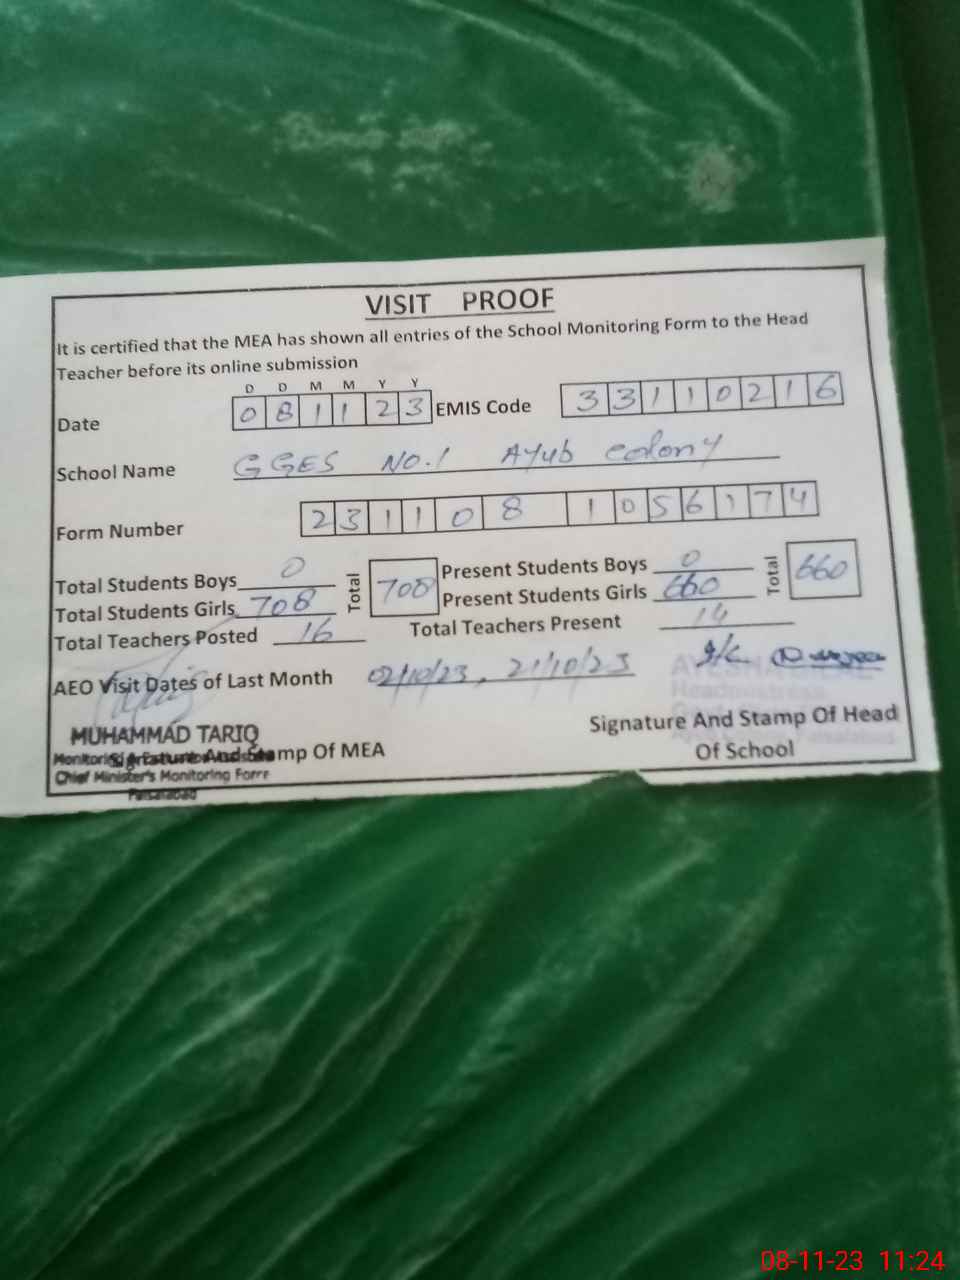 VISIT PROOF
It is certified that the MEA has shown all entries of the School Monitoring Form to the Head
Teacher before its online submission
D D M M Y Y
Date 0 8 1 1 2 3 EMIS Code 3 3 1 1 0 2 1 6
School Name GGES NO.1 Ayub colony
Form Number 2 3 1 1 0 8 1 0 5 6 1 7 4
Total Students Boys 0 Total 708 Present Students Boys 0 Total 660
Total Students Girls 708 Present Students Girls 660
Total Teachers Posted 16 Total Teachers Present 14
AEO Visit Dates of Last Month 02/10/23, 21/10/23
MUHAMMAD TARIQ
Signature And Stamp Of MEA
Chief Minister's Monitoring Force
Faisalabad
Signature And Stamp Of Head
Of School
08-11-23 11:24